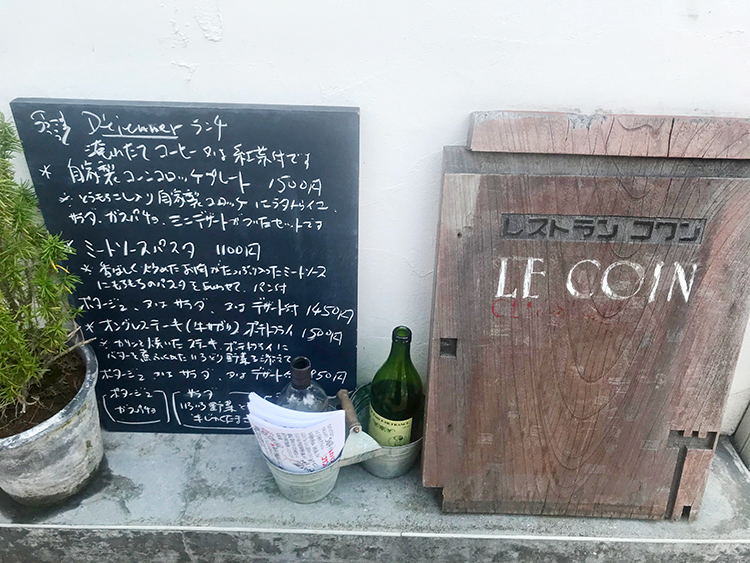 Déjeuner ランチ
淹れたて コーヒー 又は 紅茶付です
* 自家製コーンコロッケプレート 1500円
※ とうもろこし入り自家製コロッケにラタトゥイユ、
サラダ、ガスパチョ、ミニデザートがついたセットです
* ミートソースパスタ 1100円
* 香ばしく炒めたお肉がたっぷり入ったミートソース
にもちもちのパスタを合わせて、パン付
ポタージュ 又は サラダ、又は デザート付 1450円
* オングレステーキ(牛サガリ)ポテトフライ 1500円
※ カリッと焼いたステーキ、ポテトフライに
バターと煮ふくめたいろいろ野菜を添えて
ポタージュ 又は サラダ、又は デザート付 850円
ポタージュ
ガスパチョ
サラダ
いろいろ野菜と
レストラン コワン
LE COIN